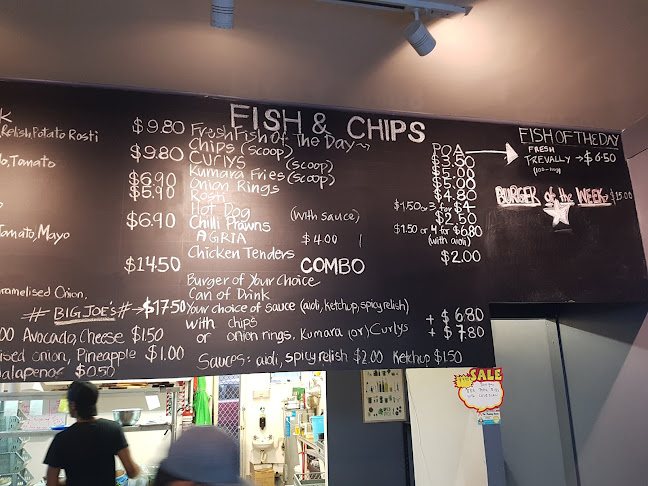 k
Relish, Potato Rosti $9.80
o, Tomato $9.80
$6.90
$5.90
$6.90
Tomato, Mayo
$14.50
aramelised Onion,
# BIG JOE'S # → $17.50
00 Avocado, Cheese $1.50
onion, Pineapple $1.00
alapenos $0.50
FISH & CHIPS
Fresh Fish of The Day → POA
Chips (scoop) $3.50
Curlys (scoop) $5.00
Kumara Fries (scoop) $5.00
Onion Rings $4.80
Rosti $1.50 or 3 for $4
Hot Dog (with sauce) $2.50
Chilli Prawns $1.50 or 4 for $6.80
(with aioli)
AGRIA $4.00
Chicken Tenders $2.00
COMBO
Burger of Your Choice
Can of Drink
Your choice of sauce (aioli, ketchup, spicy relish)
with chips + $6.80
or onion rings, Kumara (or) Curlys + $7.80
Sauces: aioli, spicy relish $2.00 Ketchup $1.50
FISH OF THE DAY
FRESH
TREVALLY → $6.50
BURGER of the WEEK $15.00
SALE